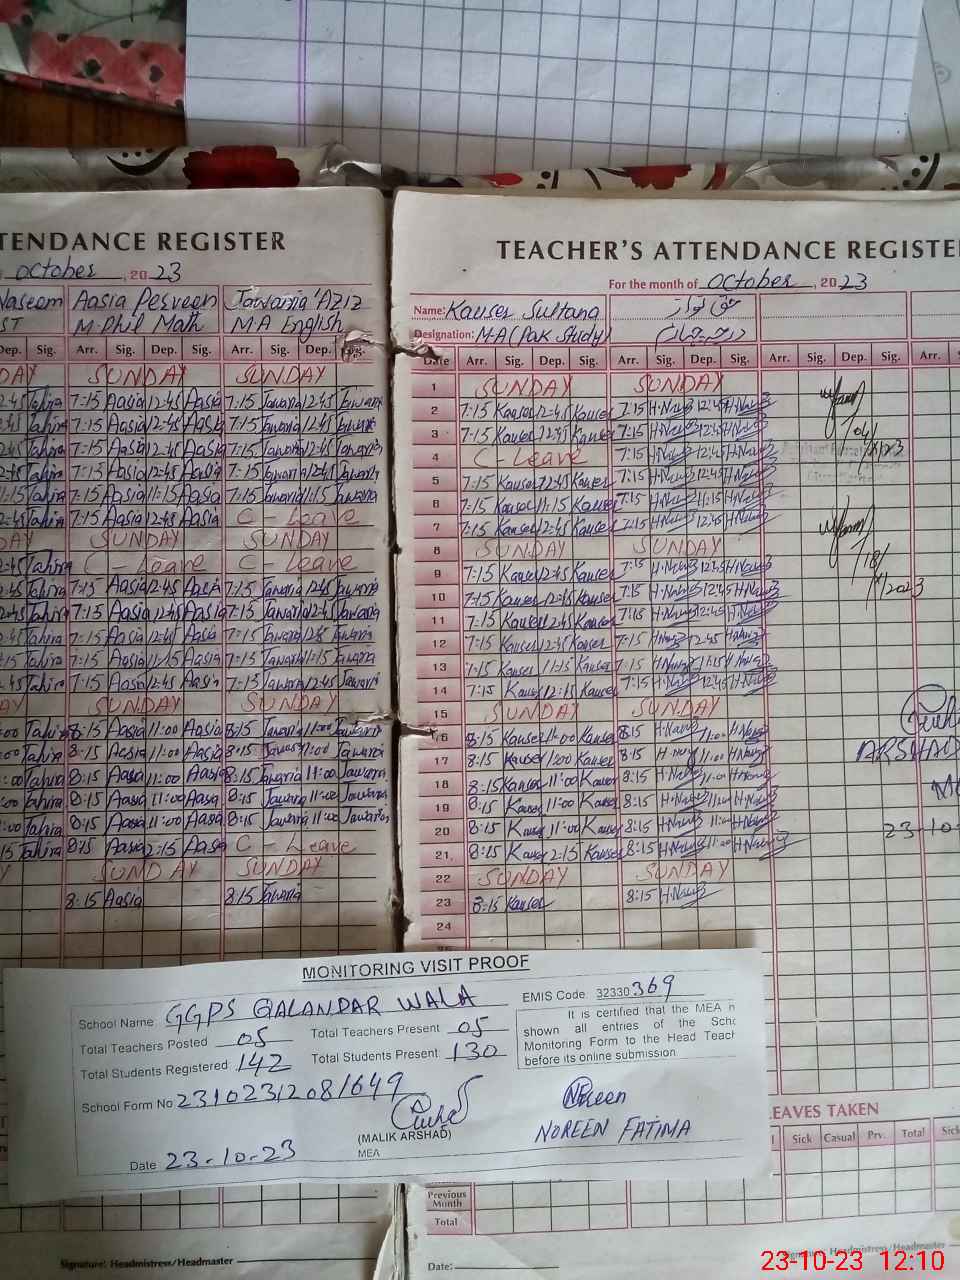 TENDANCE REGISTER
october, 2023
Naseem Aasia Perveen Jawaria Aziz
ST M.Phil Math M.A English
Dep. Sig. Arr. Sig. Dep. Sig. Arr. Sig. Dep. Sig.
DAY SUNDAY SUNDAY
2:45 Tahira 7:15 Aasia 12:45 Aasia 7:15 Jawaria 12:45 Jawaria
2:45 Tahira 7:15 Aasia 12:45 Aasia 7:15 Jawaria 12:45 Jawaria
2:45 Tahira 7:15 Aasia 12:45 Aasia 7:15 Jawaria 12:45 Jawaria
2:45 Tahira 7:15 Aasia 12:45 Aasia 7:15 Jawaria 12:45 Jawaria
1:15 Tahira 7:15 Aasia 11:15 Aasia 7:15 Jawaria 11:15 Jawaria
2:45 Tahira 7:15 Aasia 12:45 Aasia C - Leave
DAY SUNDAY SUNDAY
2:45 Tahira C - Leave C - Leave
2:45 Tahira 7:15 Aasia 12:45 Aasia 7:15 Jawaria 12:45 Jawaria
2:45 Tahira 7:15 Aasia 12:45 Aasia 7:15 Jawaria 12:45 Jawaria
2:45 Tahira 7:15 Aasia 12:45 Aasia 7:15 Jawaria Jawaria
:15 Tahira 7:15 Aasia 11:15 Aasia 7:15 Jawaria 11:15 Jawaria
2:45 Tahira 7:15 Aasia 12:45 Aasia 7:15 Jawaria 12:45 Jawaria
AY SUNDAY SUNDAY
:00 Tahira 8:15 Aasia 11:00 Aasia 8:15 Jawaria 11:00 Jawaria
:00 Tahira 8:15 Aasia 11:00 Aasia 8:15 Jawaria 11:00 Jawaria
:00 Tahira 8:15 Aasia 11:00 Aasia 8:15 Jawaria 11:00 Jawaria
:00 Tahira 8:15 Aasia 11:00 Aasia 8:15 Jawaria 11:00 Jawaria
:00 Tahira 8:15 Aasia 11:00 Aasia 8:15 Jawaria 11:00 Jawaria
15 Tahira 8:15 Aasia 2:15 Aasia C - Leave
Y SUNDAY SUNDAY
8:15 Aasia 8:15 Jawaria
TEACHER'S ATTENDANCE REGISTE
For the month of october, 2023
Name: Kauser Sultana
Designation: M.A (Pak Study)
Date Arr. Sig. Dep. Sig. Arr. Sig. Dep. Sig. Arr. Sig. Dep. Sig. Arr. S
1 SUNDAY SUNDAY
2 7:15 Kauser 12:45 Kauser 7:15 H.Nawaz 12:45 H.Nawaz
3 7:15 Kauser 12:45 Kauser 7:15 H.Nawaz 12:45 H.Nawaz
4 C - Leave 7:15 H.Nawaz 12:45 H.Nawaz
5 7:15 Kauser 12:45 Kauser 7:15 H.Nawaz 12:45 H.Nawaz
6 7:15 Kauser 11:15 Kauser 7:15 H.Nawaz 11:15 H.Nawaz
7 7:15 Kauser 12:45 Kauser 7:15 H.Nawaz 12:45 H.Nawaz
8 SUNDAY SUNDAY
9 7:15 Kauser 12:45 Kauser 7:15 H.Nawaz 12:45 H.Nawaz
10 7:15 Kauser 12:45 Kauser 7:15 H.Nawaz 12:45 H.Nawaz
11 7:15 Kauser 12:45 Kauser 7:15 H.Nawaz 12:45 H.Nawaz
12 7:15 Kauser 12:45 Kauser 7:15 H.Nawaz 12:45 H.Nawaz
13 7:15 Kauser 11:15 Kauser 7:15 H.Nawaz 11:15 H.Nawaz
14 7:15 Kauser 12:45 Kauser 7:15 H.Nawaz 12:45 H.Nawaz
15 SUNDAY SUNDAY
16 8:15 Kauser 11:00 Kauser 8:15 H.Nawaz 11:00 H.Nawaz
17 8:15 Kauser 11:00 Kauser 8:15 H.Nawaz 11:00 H.Nawaz
18 8:15 Kauser 11:00 Kauser 8:15 H.Nawaz 11:00 H.Nawaz
19 8:15 Kauser 11:00 Kauser 8:15 H.Nawaz 11:00 H.Nawaz
20 8:15 Kauser 11:00 Kauser 8:15 H.Nawaz 11:00 H.Nawaz
21 8:15 Kauser 2:15 Kauser 8:15 H.Nawaz 11:00 H.Nawaz
22 SUNDAY SUNDAY
23 8:15 Kauser 8:15 H.Nawaz
24
ARSHAD
23-10-
MONITORING VISIT PROOF
School Name GGPS QALANDAR WALA
EMIS Code 32330369
Total Teachers Posted 05 Total Teachers Present 05
Total Students Registered 142 Total Students Present 130
It is certified that the MEA h
shown all entries of the Scho
Monitoring Form to the Head Teach
before its online submission
School Form No 23102312081649
(MALIK ARSHAD)
MEA
Noreen
NOREEN FATIMA
Date 23-10-23
LEAVES TAKEN
Sick Casual Prv. Total Sick
Previous Month
Total
Signature: Headmistress/Headmaster
Date:
Signature: Headmistress/Headmaster
23-10-23 12:10